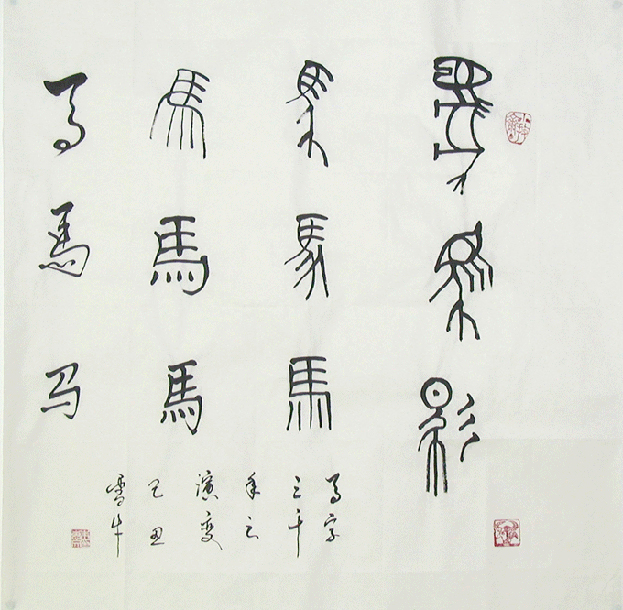 馬馬馬
馬馬馬
馬馬馬
馬馬马
馬字
三千
年之
演变
己丑
雪牛